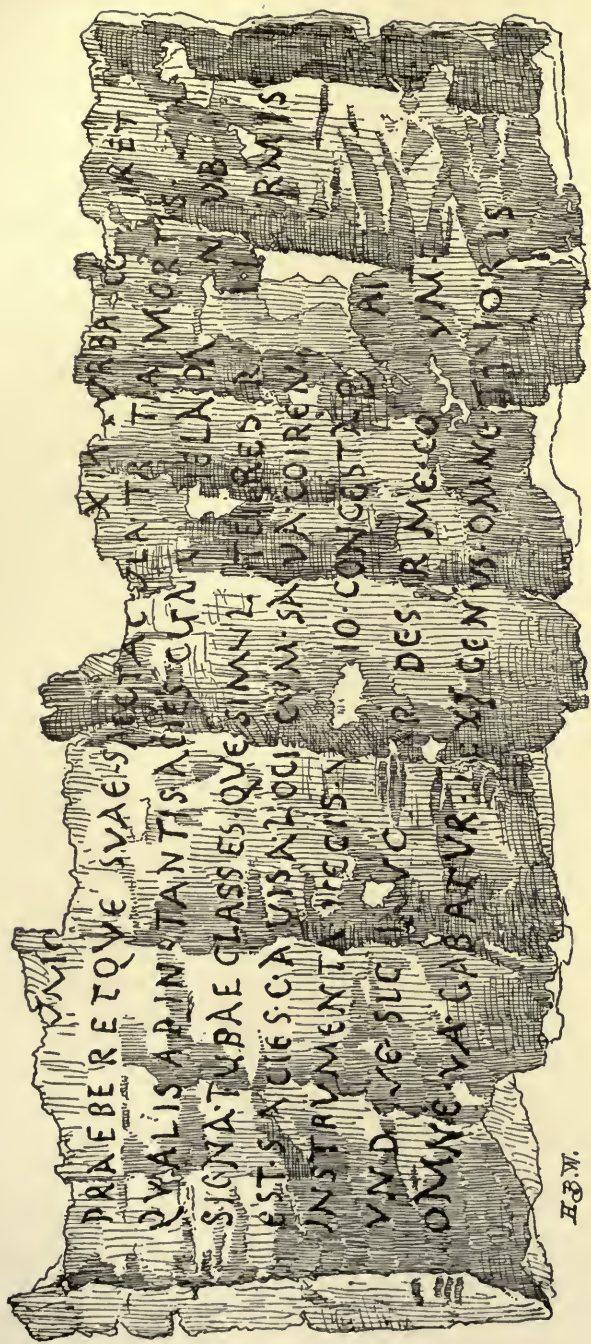 VRBA·CO IRET
PRAEBERETQVE SVAE·S ECTAC VLA·TR TIA·MORTIS·
QVALIS AD·IN TANTIS·ACIES·CVM ELA·PA N VB
SIGNA·TVBAE CLASSES·QVE·SIMVL· TERRES R RMIS
EST·S ACIES·EA VISA·LOCI CVM·SA VA·COIREN
INSTRVMENTA NECIS· IO·CONGESTA·P A
VND VE·SIC LVC P DE RME·CO VM·
OMNE·VA·GABATVR·L TI GENVS·OMNE·TIMORIS
H.B.W.